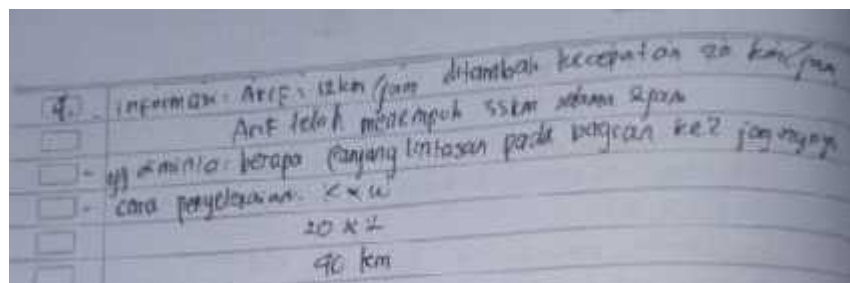 4. - informasi: Arif: 12km/jam ditambah kecepatan 20 km/jam
Arif telah menempuh 55km selama 4jam
- yg diminta: berapa panjang lintasan pada bagian ke2
- cara penyelesaian. K x W
20 x 2
40 km